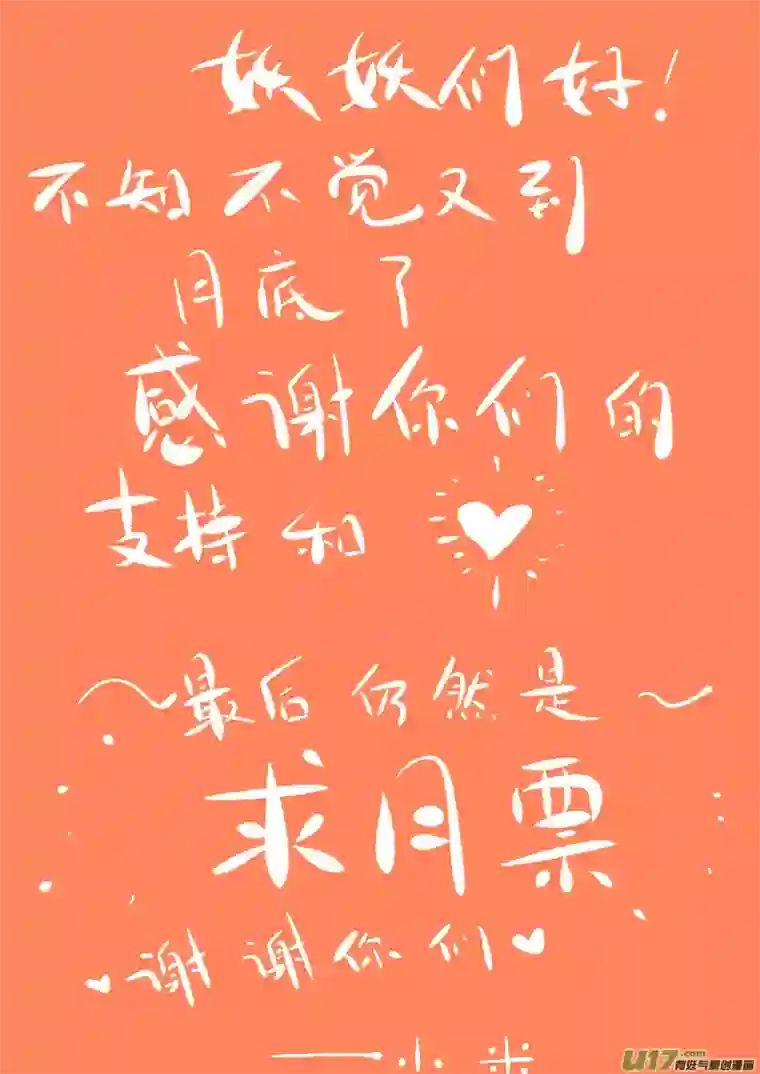 妖妖们好!
不知不觉又到
月底了
感谢你们的
支持和
~最后仍然是~
求月票
谢谢你们
——小米
U17.com
有妖气原创漫画